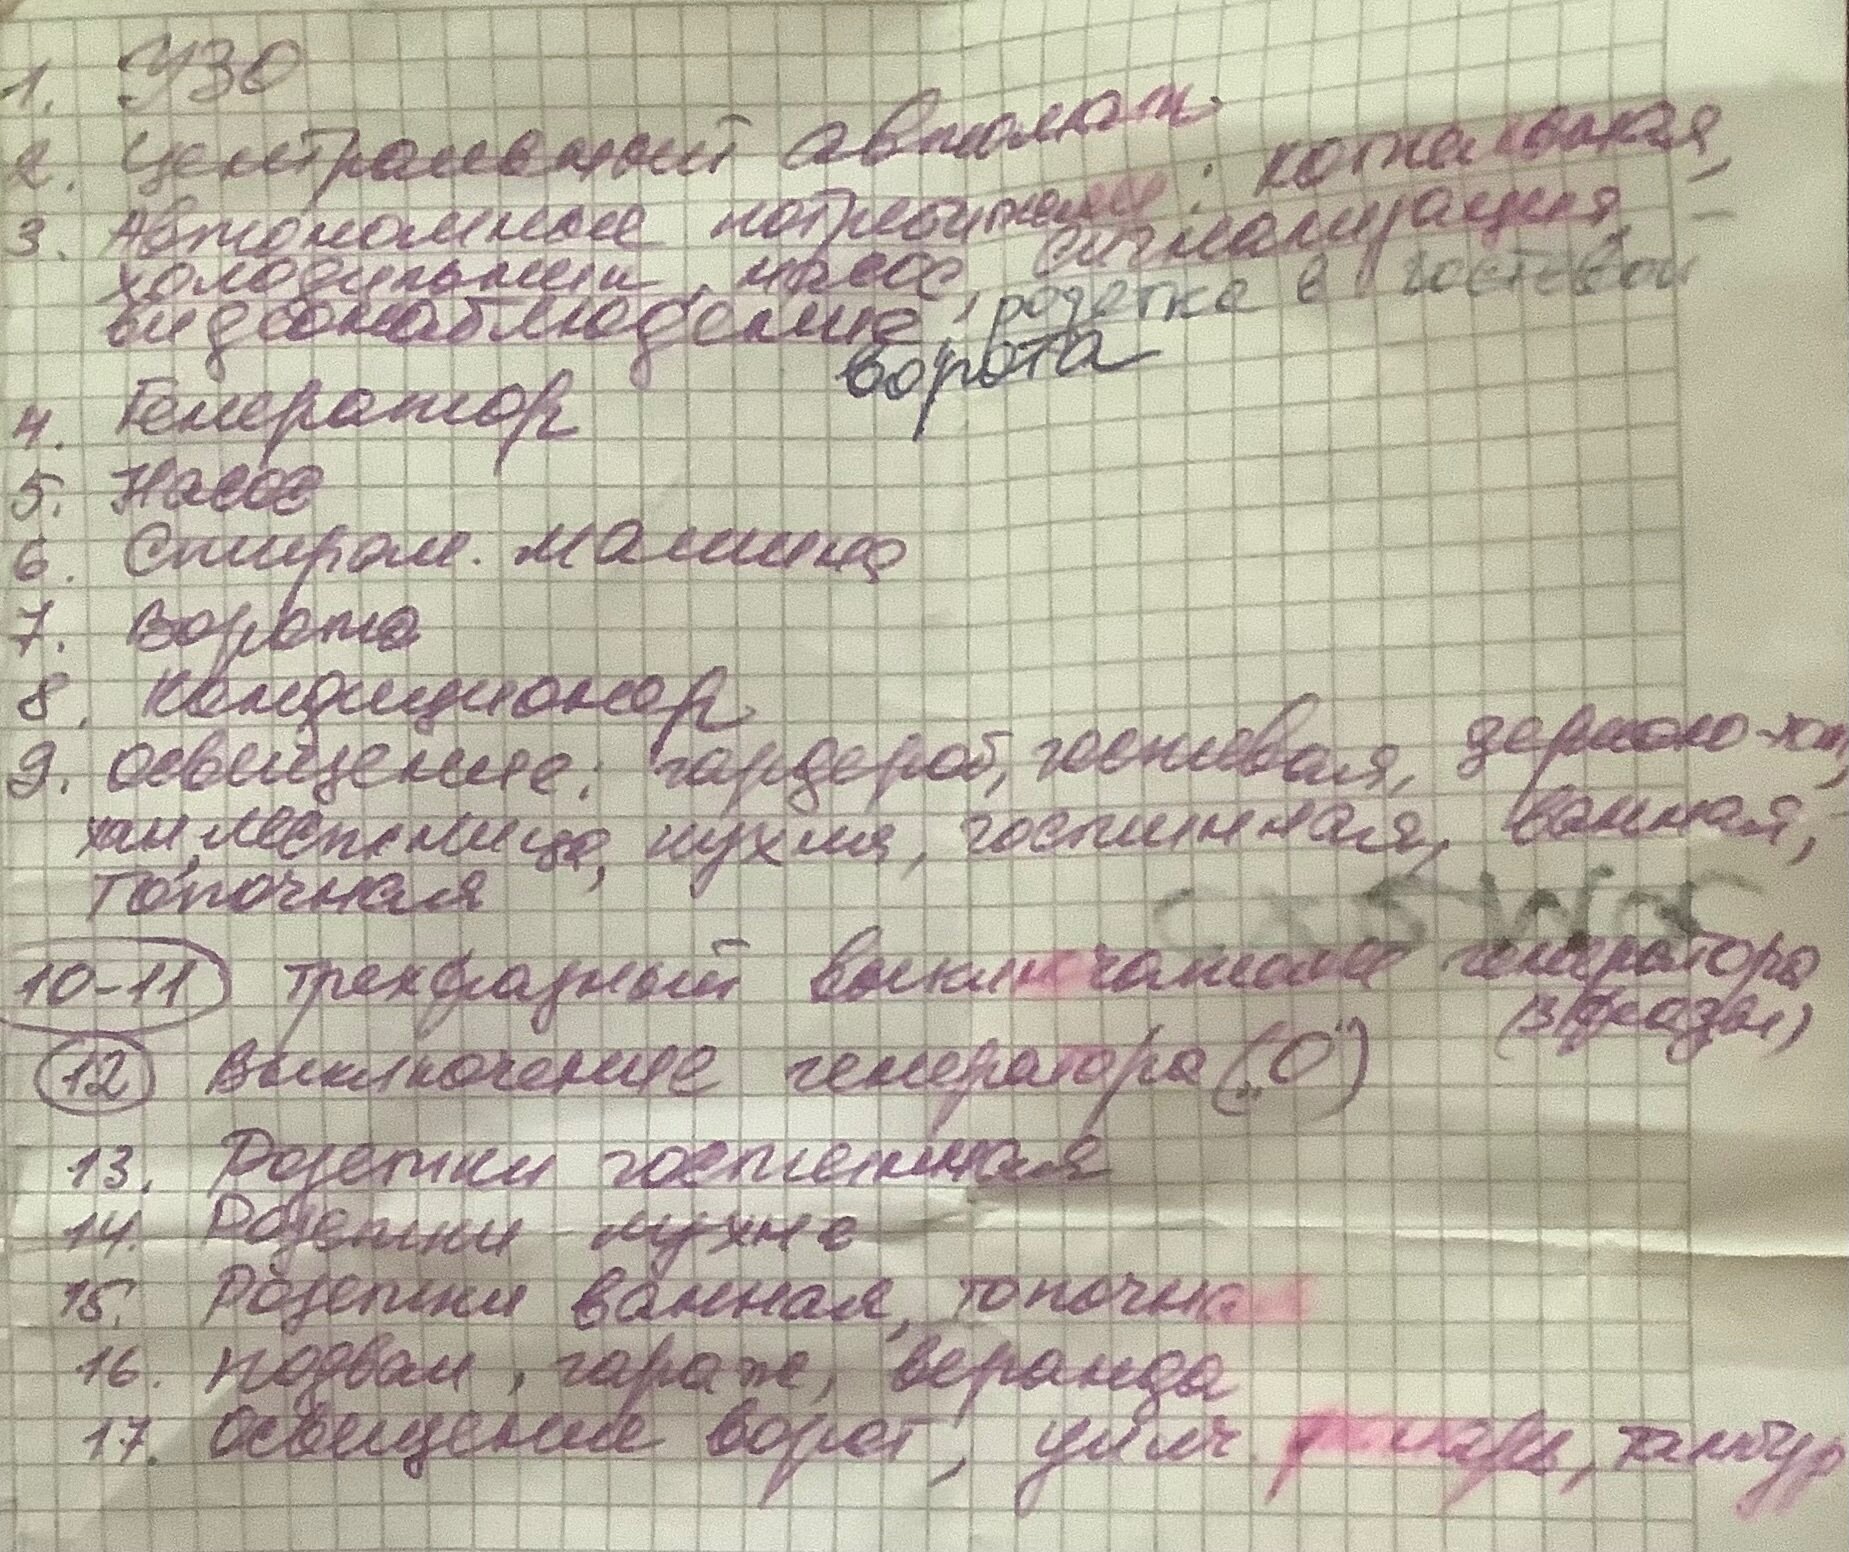 1. УЗО
2. Центральный автомат
3. Автономные потребители: котельная,
холодильник, насос, сигнализация,
видеонаблюдение, розетка в гостевой
ворота
4. Генератор
5. Насос
6. Стирал. машина
7. Ворота
8. Кондиционер
9. освещение: гардероб, гостевая, зеркало-хол,
хол, лестница, кухня, гостинная, ванная,
топочная
10-11 трехфазный выключатель генератора
(3 фазы)
12 Выключение генератора („0")
13. Розетки гостинная
14. Розетки кухне
15. Розетки ванная, топочная
16. подвал, гараж, веранда
17. Освещение ворот, улич. фонарь, тамбур